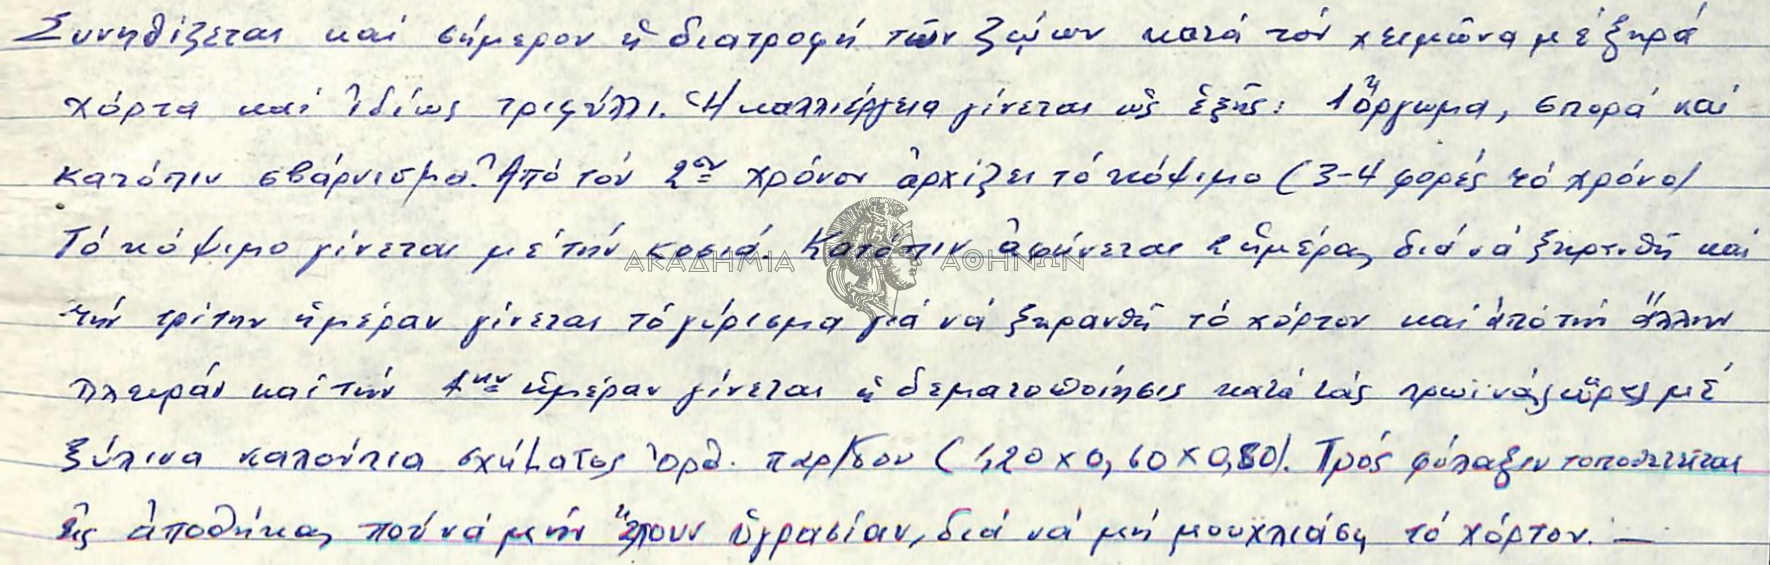 Συνηθίζεται καί σήμερον ἡ διατροφή τῶν ζῴων κατά τόν χειμῶνα μέ ξηρά
χόρτα καί ἰδίως τριφύλλι. Ἡ καλλιέργεια γίνεται ὡς ἑξῆς: 1 ὄργωμα, σπορά καί
κατόπιν σβάρνισμα. Ἀπό τόν 2ον χρόνον ἀρχίζει τό κόψιμο (3-4 φορές τό χρόνο)
Τό κόψιμο γίνεται μέ τήν κοσιά. Κατόπιν ἀφήνεται 2 ἡμέρας διά νά ξηρανθῆ καί
ΑΚΑΔΗΜΙΑ ΑΘΗΝΩΝ
τήν τρίτην ἡμέραν γίνεται τό γύρισμα γιά νά ξηρανθῆ τό χόρτον καί ἀπό τήν ἄλλην
πλευράν καί τήν 4ην ἡμέραν γίνεται ἡ δεματοποίησις κατά τάς πρωϊνάς ὥρας μέ
ξύλινα καλούπια σχήματος ὀρθ. παρ/δου (1,20 x 0,60 x 0,80). Πρός φύλαξιν τοποθετεῖται
εἰς ἀποθήκας πού νά μήν ἔχουν ὑγρασίαν, διά νά μή μουχλιάσῃ τό χόρτον. —